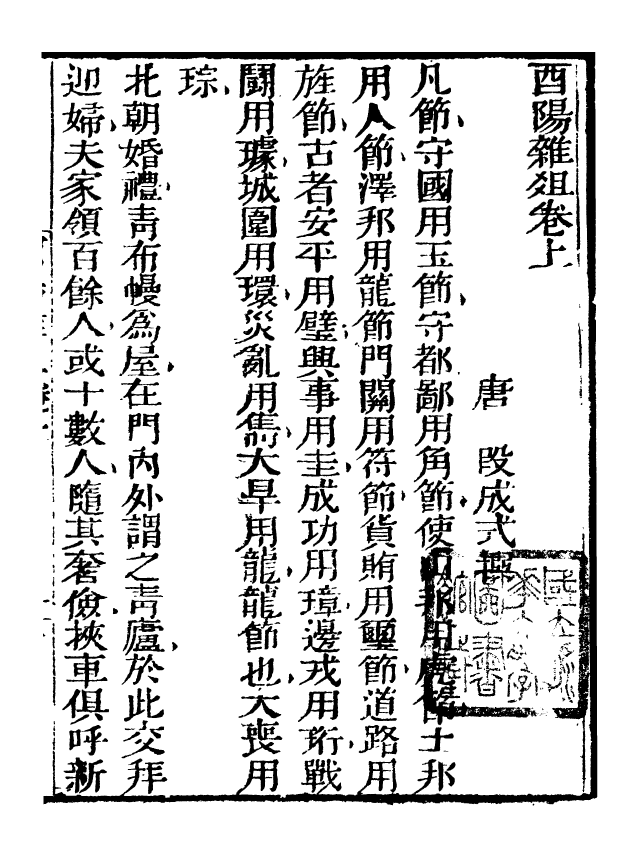 酉陽雜俎卷上
唐　段成式撰
凡節守國用玉節守都鄙用角節使山邦用虎節土邦
用人節澤邦用龍節門關用符節貨賄用璽節道路用
旌節古者安平用璧興事用圭成功用璋邊戎用珩戰
鬪用璩城圍用環災亂用雋大旱用龍龍節也大喪用
琮
北朝婚禮青布幔爲屋在門內外謂之青廬於此交拜
迎婦夫家領百餘人或十數人隨其奢儉挾車俱呼新